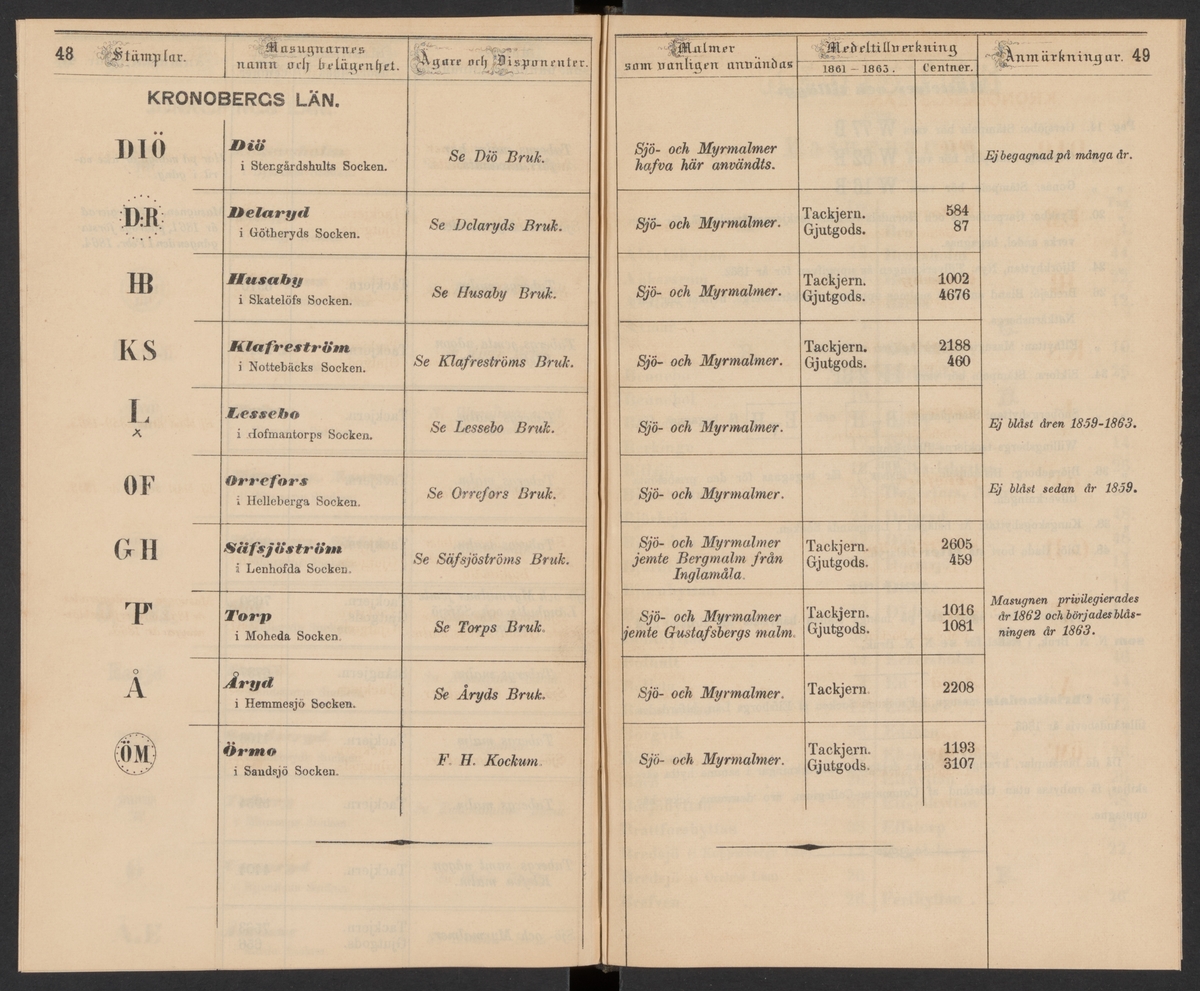 48
Stämplar.
Masugnarnes
namn och belägenhet.
Ägare och Disponenter.
Malmer
som vanligen användas
Medeltillverkning
1861 – 1863.
Centner.
Anmärkningar.
49
KRONOBERGS LÄN.
DIÖ
Diö
i Stengårdshults Socken.
Se Diö Bruk.
Sjö- och Myrmalmer
hafva här användts.
Ej begagnad på många år.
D·R
Delaryd
i Götheryds Socken.
Se Delaryds Bruk.
Sjö- och Myrmalmer.
Tackjern. 584
Gjutgods. 87
HB
Husaby
i Skatelöfs Socken.
Se Husaby Bruk.
Sjö- och Myrmalmer.
Tackjern. 1002
Gjutgods. 4676
KS
Klafreström
i Nottebäcks Socken.
Se Klafreströms Bruk.
Sjö- och Myrmalmer.
Tackjern. 2188
Gjutgods. 460
L
x
Lessebo
i Hofmantorps Socken.
Se Lessebo Bruk.
Sjö- och Myrmalmer.
Ej blåst åren 1859-1863.
OF
Orrefors
i Helleberga Socken.
Se Orrefors Bruk.
Sjö- och Myrmalmer.
Ej blåst sedan år 1859.
GH
Säfsjöström
i Lenhofda Socken.
Se Säfsjöströms Bruk.
Sjö- och Myrmalmer
jemte Bergmalm från
Inglamåla.
Tackjern. 2605
Gjutgods. 459
Torp
i Moheda Socken.
Se Torps Bruk.
Sjö- och Myrmalmer
jemte Gustafsbergs malm.
Tackjern. 1016
Gjutgods. 1081
Masugnen privilegierades
år 1862 och börjades blås-
ningen år 1863.
Å
Åryd
i Hemmesjö Socken.
Se Åryds Bruk.
Sjö- och Myrmalmer.
Tackjern. 2208
ÖM
Örmo
i Sandsjö Socken.
F. H. Kockum.
Sjö- och Myrmalmer.
Tackjern. 1193
Gjutgods. 3107